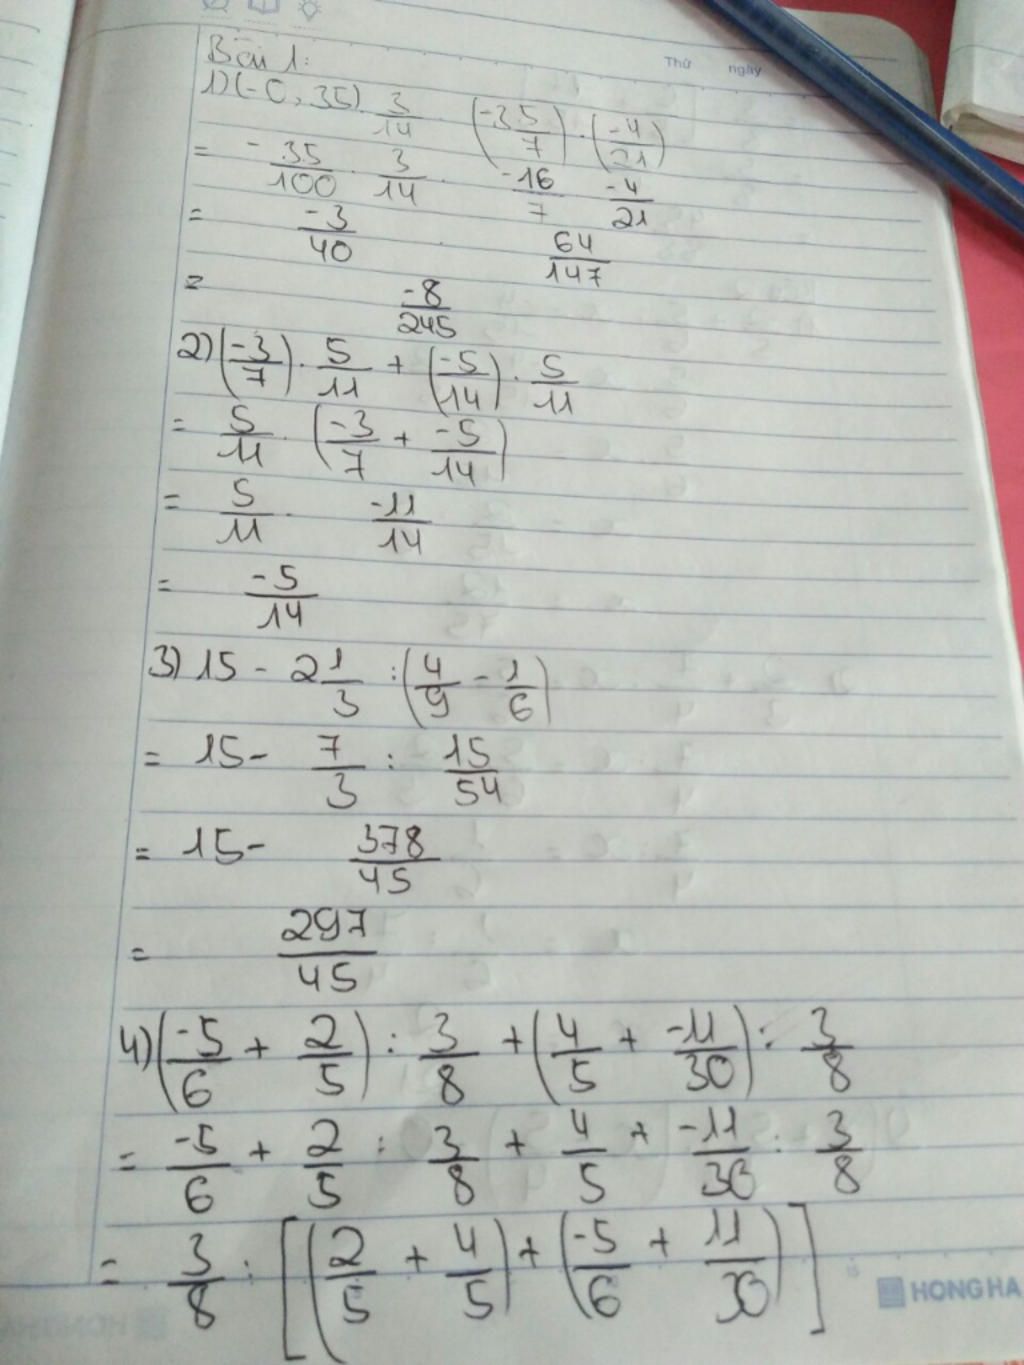 Thứ ngày
Bài 1:
1) (-0,35) . 3/14 (-3 5/7) . (-4/21)
= -35/100 . 3/14 . -16/7 -4/21
= -3/40 . 64/147
= -8/245
2) (-3/7) . 5/11 + (-5/14) . 5/11
= 5/11 . (-3/7 + -5/14)
= 5/11 . -11/14
= -5/14
3) 15 - 2 1/3 : (4/9 - 1/6)
= 15 - 7/3 : 15/54
= 15 - 378/45
= 297/45
4) (-5/6 + 2/5) : 3/8 + (4/5 + -11/30) : 3/8
= -5/6 + 2/5 : 3/8 + 4/5 + -11/30 : 3/8
= 3/8 : [(2/5 + 4/5) + (-5/6 + 11/30)]
HONG HA